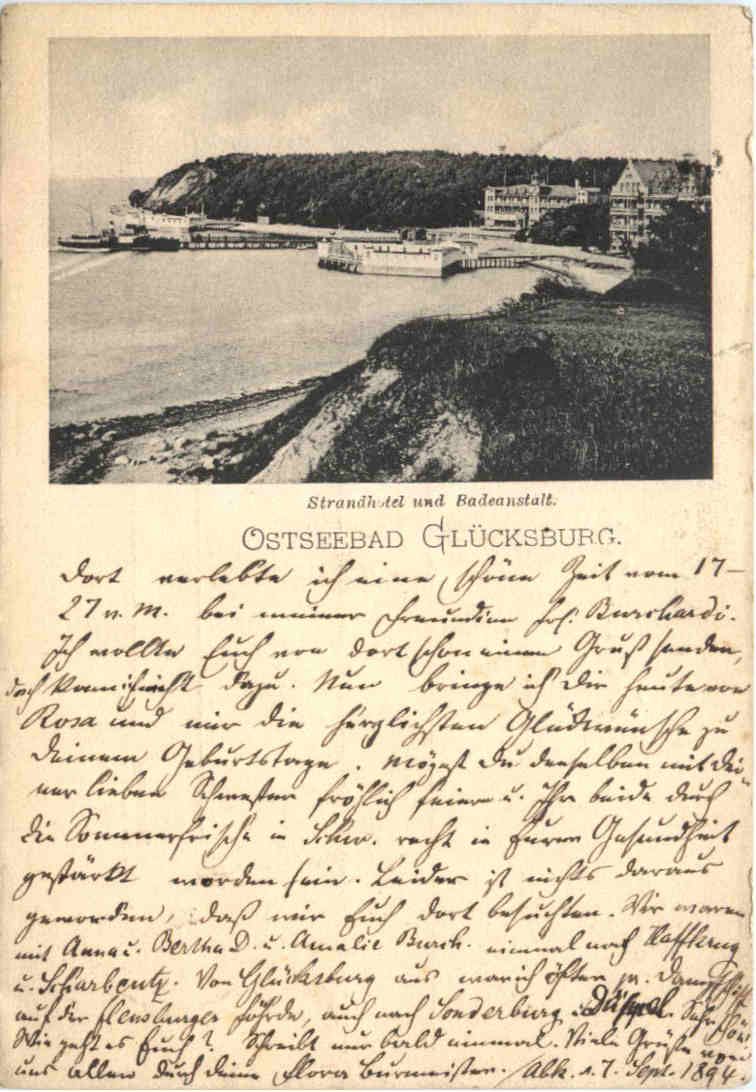 Strandhotel und Badeanstalt.
OSTSEEBAD GLÜCKSBURG.
Dort verlebte ich eine schöne Zeit vom 17–
27 v. M. bei meiner Freundin Frl. Burchardi.
Ich wollte Euch von dort schon einen Gruß senden,
doch kam ich nicht dazu. Nun bringe ich Dir heute von
Rosa und mir die herzlichsten Glückwünsche zu
Deinem Geburtstage. Mögest Du denselben mit Dei
ner lieben Schwester fröhlich feiern u. Ihr beide durch
die Sommerfrische in Schw. recht in Eurer Gesundheit
gestärkt worden sein. Leider ist nichts daraus
geworden, daß wir Euch dort besuchten. Wir waren
mit Anna u. Bertha D. u. Amalie Burch. einmal nach Haffkrug
u. Scharbeutz. Von Glücksburg aus war ich öfter p. Dampfschiff
auf der Flensburger Föhrde, auch nach Sonderburg Düppel. Sehr schön
Wie geht es Euch? Schreibt nur bald einmal. Viele Grüße von
uns allen durch Deine Flora Burmeister. 7. Sept. 1894.